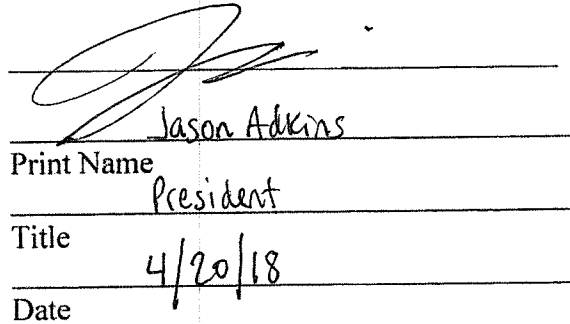 Jason Adkins
Print Name
President
Title
4/20/18
Date